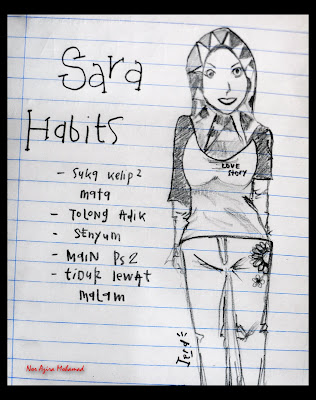 Sara
Habits
- Suka Kelip2
mata
- Tolong Adik
- Senyum
- Main Ps2
- tidur lewat
malam
LOVE
STORY
Nor Azira Mohamed